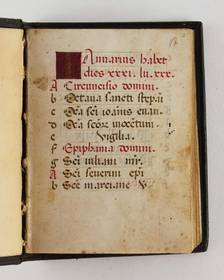 Januarius habet
dies xxxi. lu. xxx.
A Circumcisio domini.
b Octava sancti stepani
c Oca sci ioanis evan.
d Oca scorz inocetum.
e Vigilia.
f Epiphania domini.
g Sci iuliani mr.
A Sci severini epi
b Sci marciane v.